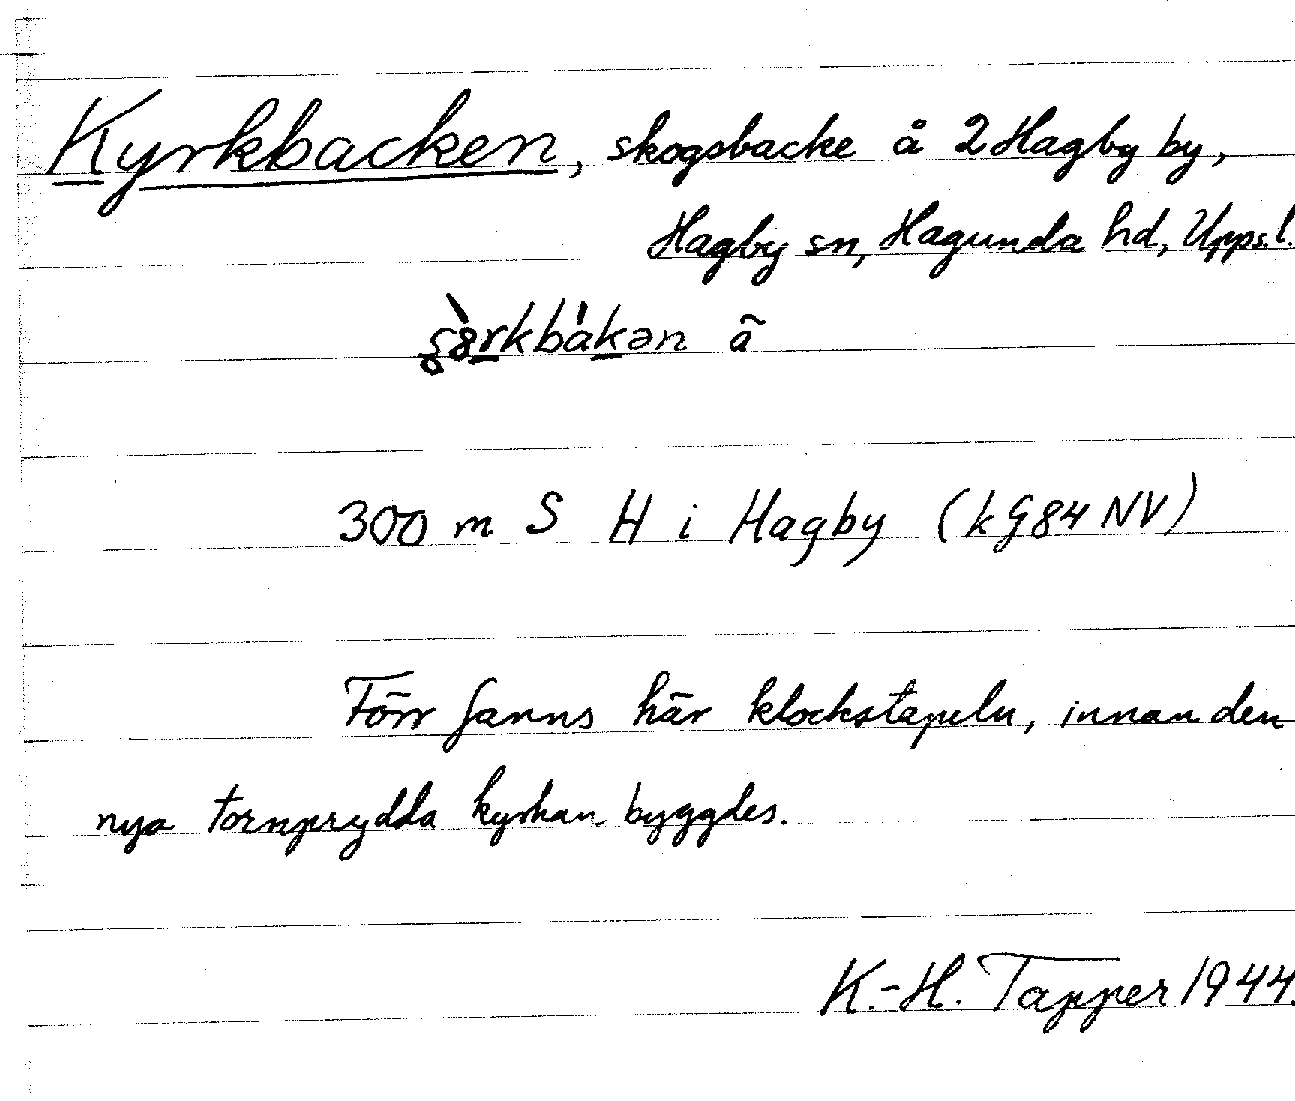 Kyrkbacken, skogsbacke å 2 Hagby by,
Hagby sn, Hagunda hd, Upps. l.
300 m S H i Hagby (kG84 NV)
Förr fanns här klockstapeln, innan den
nya tornprydda kyrkan byggdes.
K.-H. Tapper 1944.